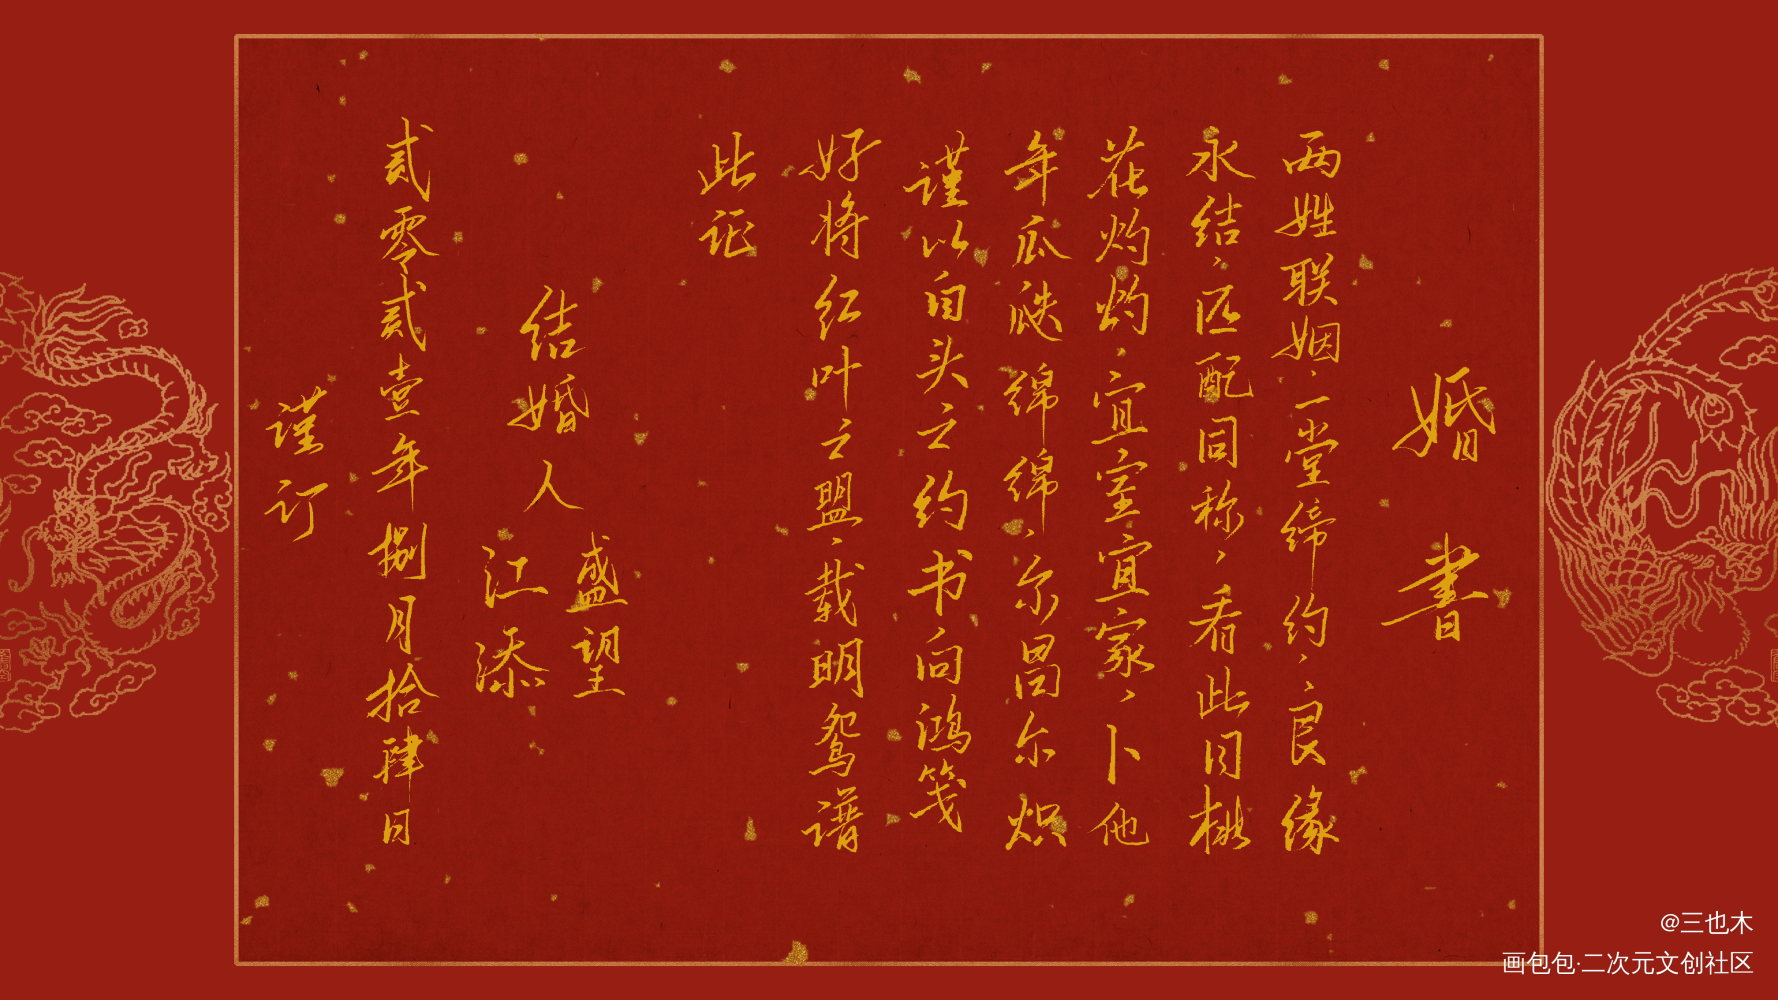 婚書
两姓联姻、一堂缔约、良缘
永结、匹配同称、看此日桃
花灼灼、宜室宜家、卜他
年瓜瓞绵绵、尔昌尔炽
谨以白头之约书向鸿笺
好将红叶之盟、载明鸳谱
此证
结婚人
盛望
江添
贰零贰壹年捌月拾肆日
谨订
@三也木
画包包·二次元文创社区